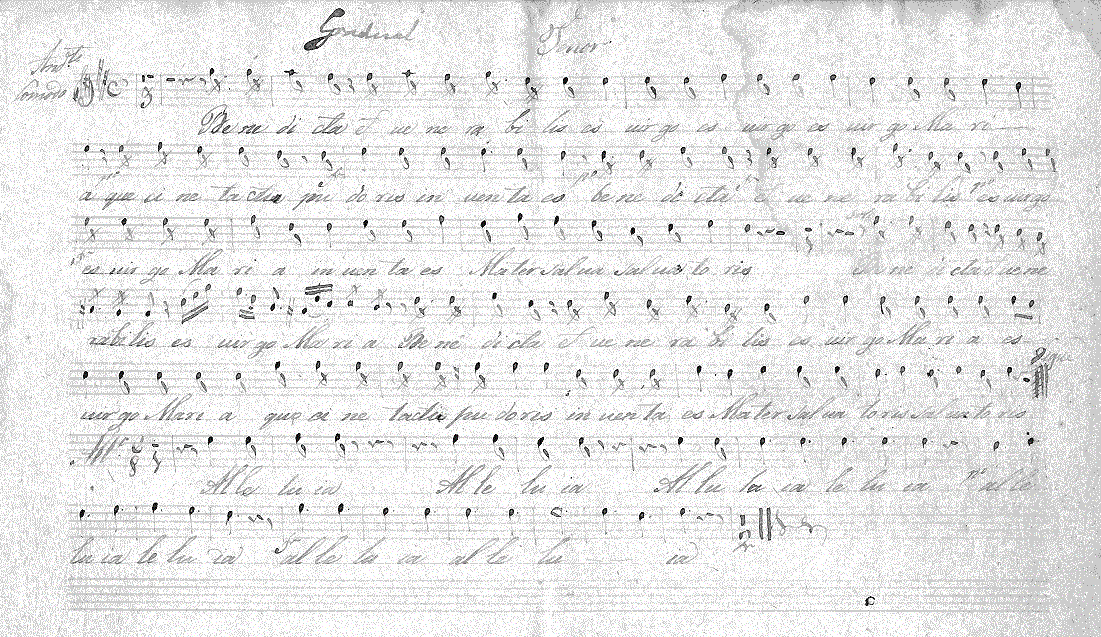 Gradual Tenor
And.te
Be ne di cta et ve ne ra bi lis es virgo es virgo es virgo Ma ri
a que ci ne tactu pu doris in venta es be ne di cta et ve ne ra bi lis es virgo
es vir go Ma ri a in venta es Mater salva salva to ris Be ne di cta et vene
rabilis es virgo Ma ri a Be ne di cta et ve ne ra bi lis es vir go Ma ri a es
virgo Mari a que ci ne tactu pu doris in ven ta es Mater salva toris salva to ris
Alle lu ia Al le lu ia Al lu ia le lu ia al le
lu ia le lu ia al le lu ia al le lu ia